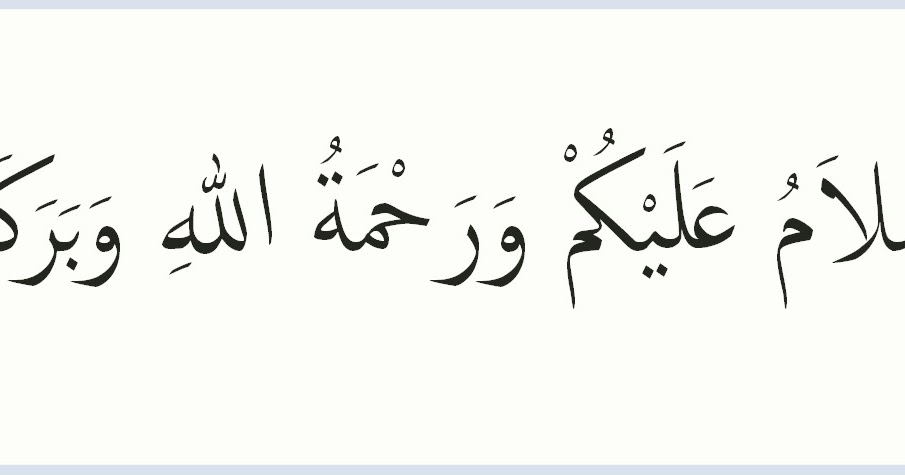 لاَمُ عَلَيْكُمْ وَرَحْمَةُ اللّٰهِ وَبَرَكَ